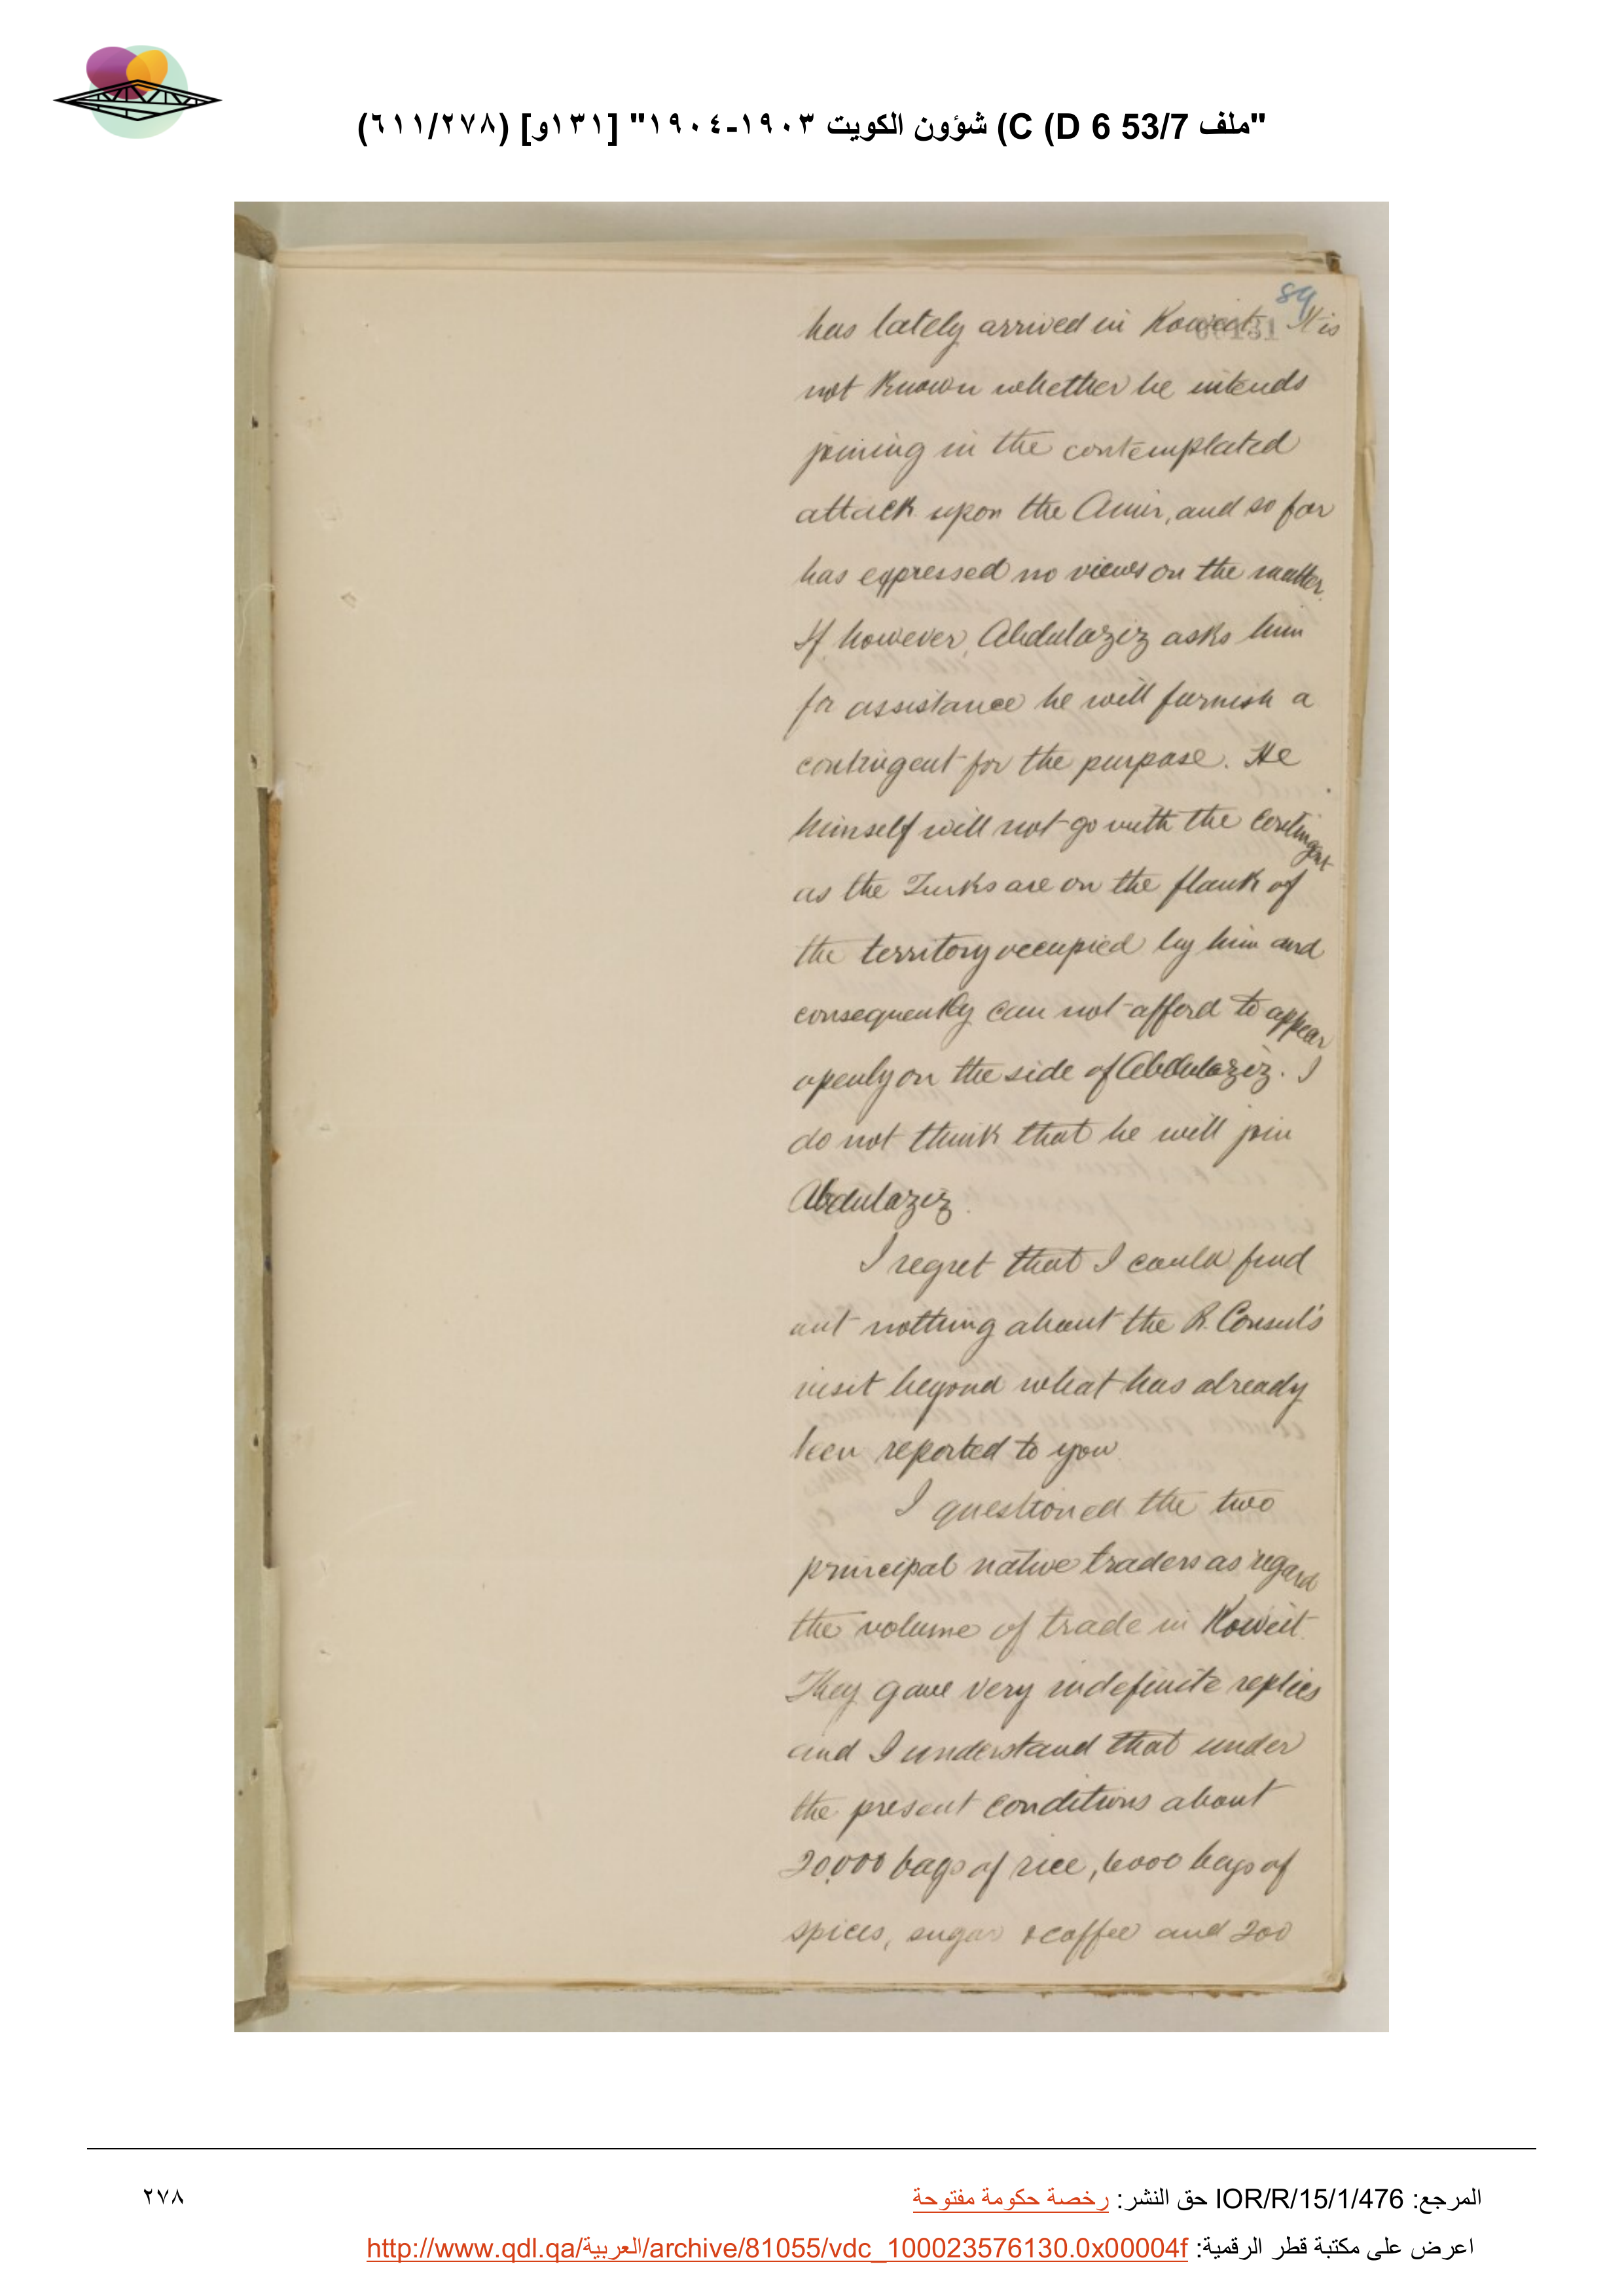 "ملف 53/7 C (D 6) شؤون الكويت ١٩٠٣-١٩٠٤" [١٣١و] (٦١١/٢٧٨)
89
has lately arrived in Koweit. It is
not known whether he intends
joining in the contemplated
attack upon the Amir, and so far
has expressed no views on the matter.
If however, Abdulaziz asks him
for assistance he will furnish a
contingent for the purpose. He
himself will not go with the contingent
as the Turks are on the flank of
the territory occupied by him and
consequently can not afford to appear
openly on the side of Abdulaziz. I
do not think that he will join
Abdulaziz.
I regret that I could find
out nothing about the R. Consul's
visit beyond what has already
been reported to you
I questioned the two
principal native traders as regard
the volume of trade in Koweit.
They gave very indefinite replies
and I understand that under
the present conditions about
20,000 bags of rice, 6000 bags of
spices, sugar & coffee and 200
المرجع: IOR/R/15/1/476 حق النشر: رخصة حكومة مفتوحة
٢٧٨
اعرض على مكتبة قطر الرقمية: http://www.qdl.qa/العربية/archive/81055/vdc_100023576130.0x00004f